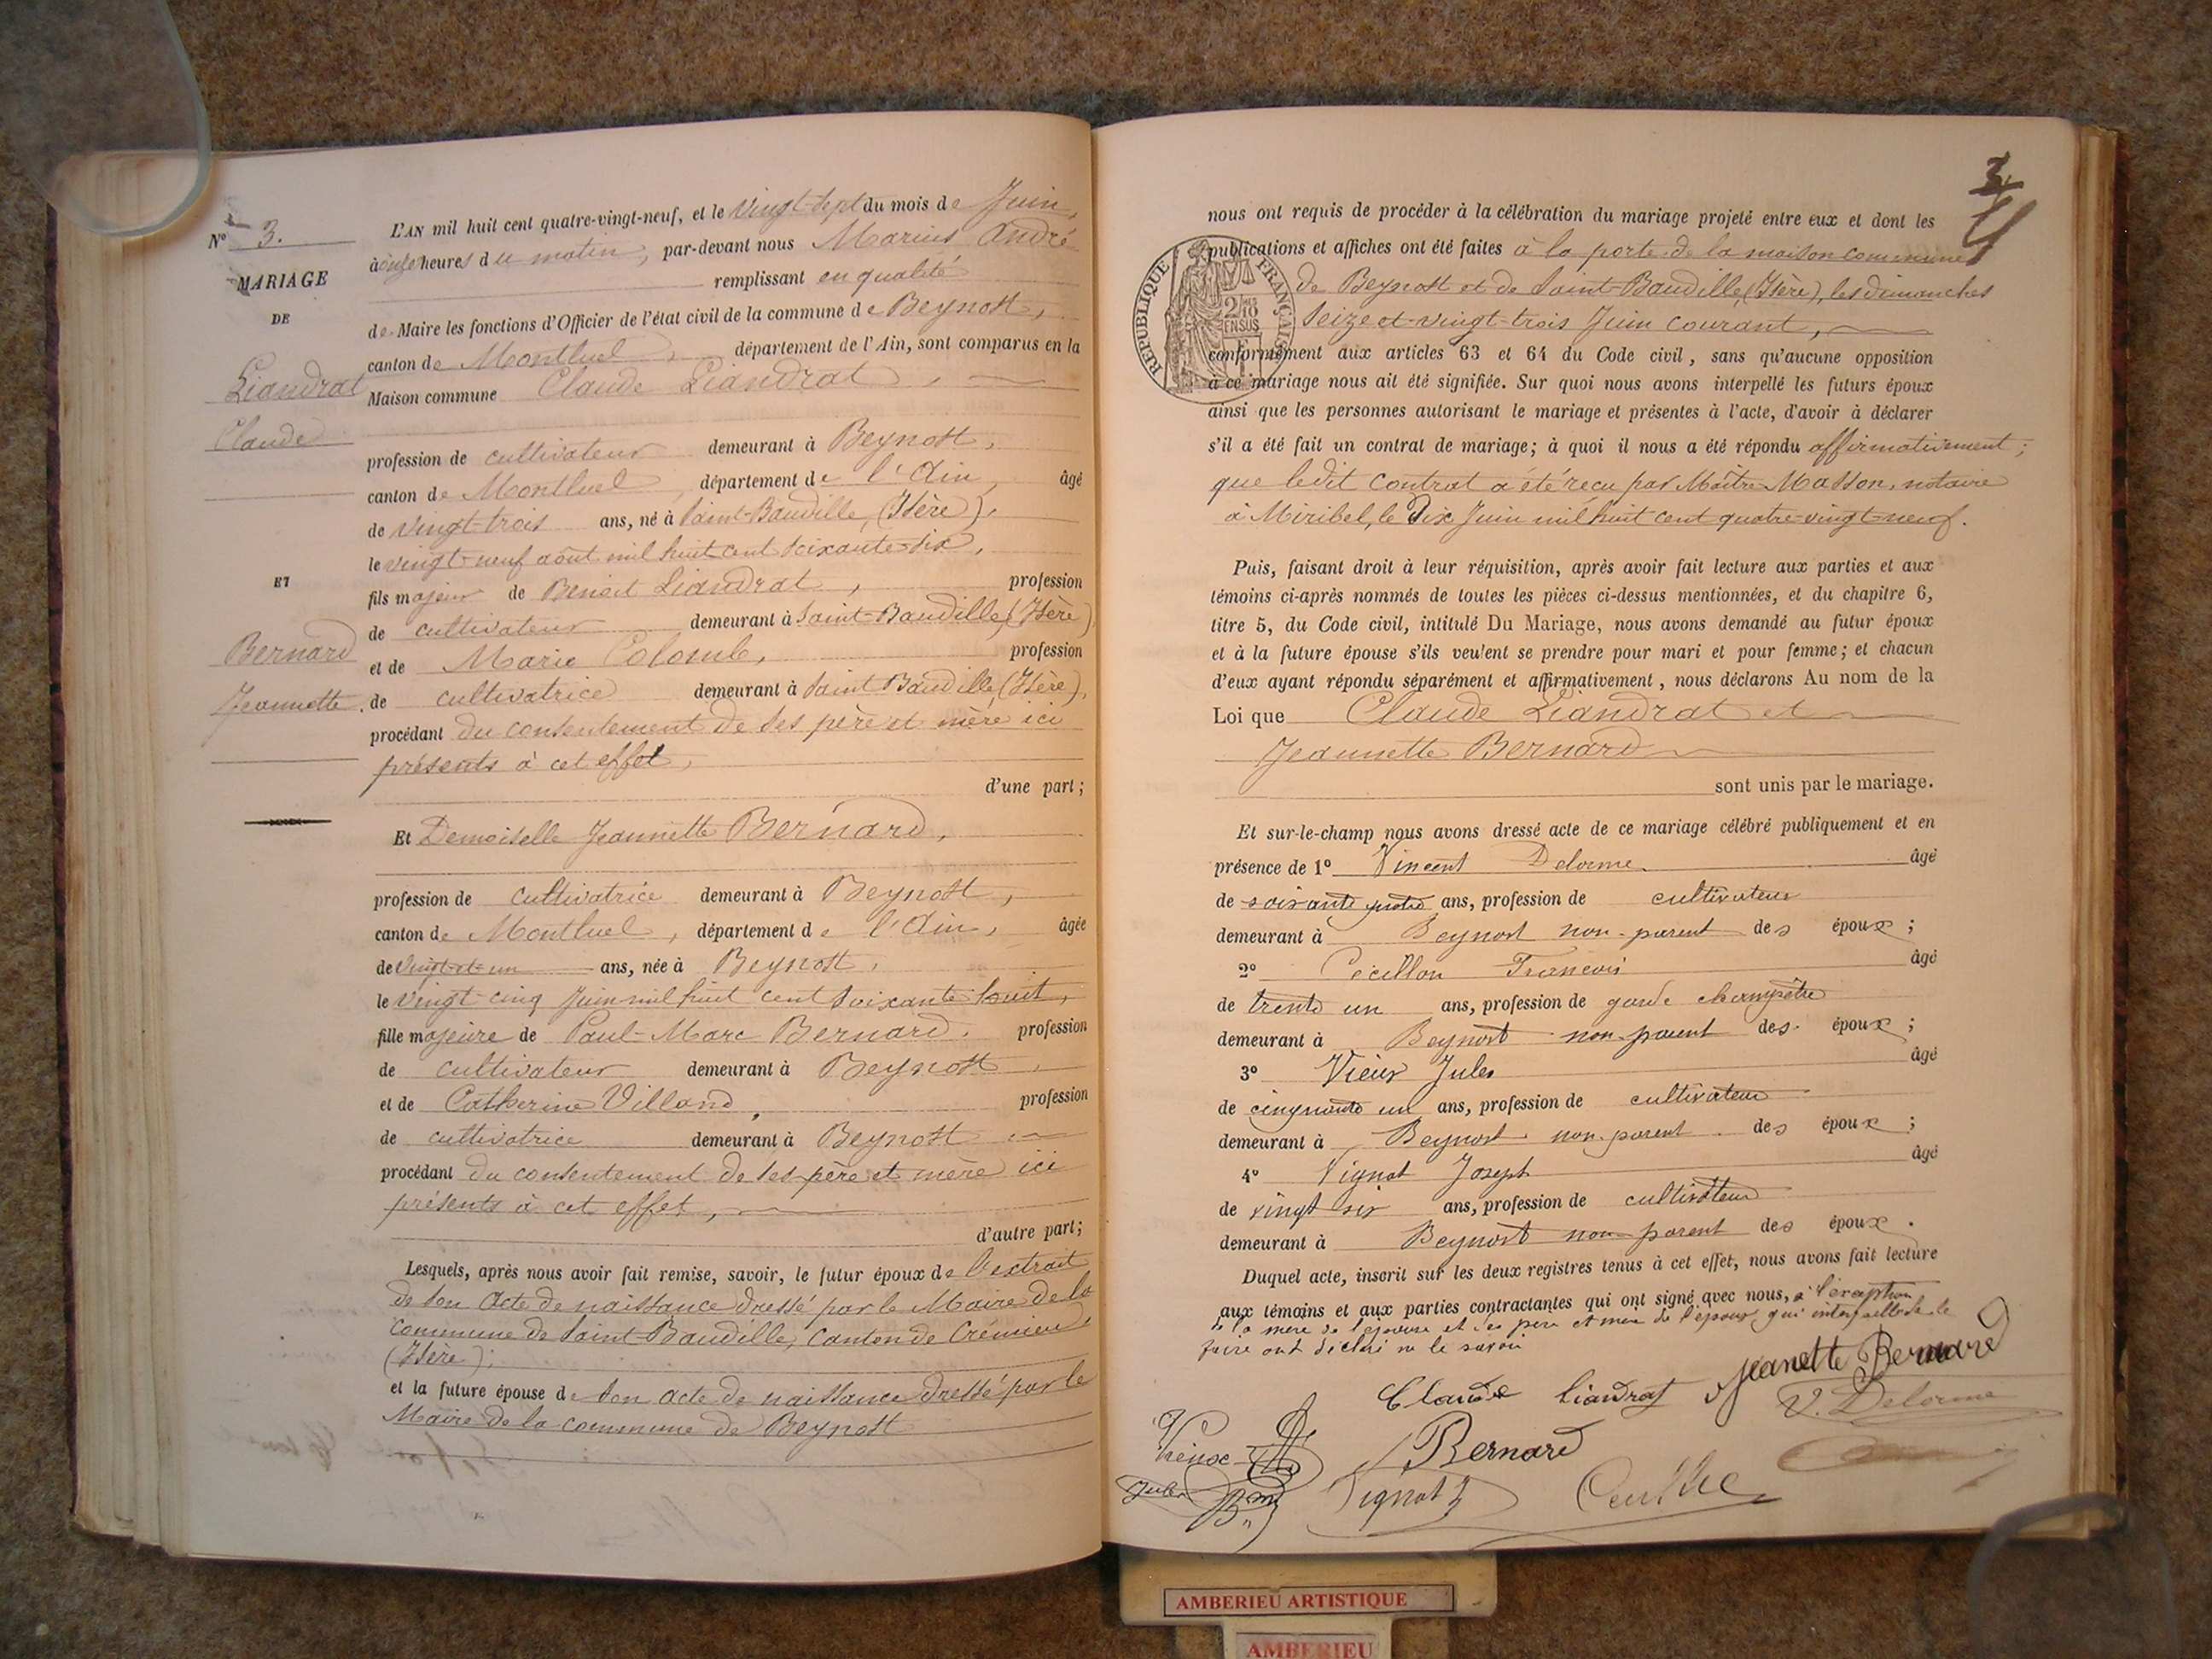 N° 3.
MARIAGE
DE
Liandrat
Claude
ET
Bernard
Jeannette.
L'AN mil huit cent quatre-vingt-neuf, et le vingt-sept du mois de Juin,
à onze heures du matin, par-devant nous Marius André
remplissant en qualité
de Maire les fonctions d'Officier de l'état civil de la commune de Beynost,
canton de Montluel, département de l'Ain, sont comparus en la
Maison commune Claude Liandrat,
profession de cultivateur demeurant à Beynost,
canton de Montluel, département de l'Ain, âgé
de vingt-trois ans, né à Saint-Baudille, (Isère),
le vingt-neuf août mil huit cent soixante-six,
fils majeur de Benoit Liandrat, profession
de cultivateur demeurant à Saint-Baudille, (Isère)
et de Marie Colomb, profession
de cultivatrice demeurant à Saint-Baudille (Isère),
procédant du consentement de ses père et mère ici
présents à cet effet,
d'une part;
Et Demoiselle Jeannette Bernard,
profession de cultivatrice demeurant à Beynost,
canton de Montluel, département de l'Ain, âgée
de vingt-et-un ans, née à Beynost,
le vingt-cinq Juin mil huit cent soixante-huit,
fille majeure de Paul-Marc Bernard, profession
de cultivateur demeurant à Beynost,
et de Catherine Villand, profession
de cultivatrice demeurant à Beynost
procédant du consentement de ses père et mère ici
présents à cet effet,
d'autre part;
Lesquels, après nous avoir fait remise, savoir, le futur époux de l'extrait
de son acte de naissance dressé par le Maire de la
commune de Saint-Baudille, canton de Crémieu,
(Isère);
et la future épouse de son acte de naissance dressé par le
Maire de la commune de Beynost
3
nous ont requis de procéder à la célébration du mariage projeté entre eux et dont les
publications et affiches ont été faites à la porte de la maison commune
de Beynost et de Saint-Baudille, (Isère), les dimanches
seize et vingt-trois Juin courant,
conformément aux articles 63 et 64 du Code civil, sans qu'aucune opposition
à ce mariage nous ait été signifiée. Sur quoi nous avons interpellé les futurs époux
ainsi que les personnes autorisant le mariage et présentes à l'acte, d'avoir à déclarer
s'il a été fait un contrat de mariage; à quoi il nous a été répondu affirmativement;
que ledit contrat a été reçu par Maître Masson, notaire
à Miribel, le dix Juin mil huit cent quatre-vingt-neuf.
RÉPUBLIQUE FRANÇAISE
2/10 EN SUS
Puis, faisant droit à leur réquisition, après avoir fait lecture aux parties et aux
témoins ci-après nommés de toutes les pièces ci-dessus mentionnées, et du chapitre 6,
titre 5, du Code civil, intitulé Du Mariage, nous avons demandé au futur époux
et à la future épouse s'ils veulent se prendre pour mari et pour femme; et chacun
d'eux ayant répondu séparément et affirmativement, nous déclarons Au nom de la
Loi que Claude Liandrat et
Jeannette Bernard
sont unis par le mariage.
Et sur-le-champ nous avons dressé acte de ce mariage célébré publiquement et en
présence de 1° Vincent Delorme âgé
de soixante quatre ans, profession de cultivateur
demeurant à Beynost non-parent des époux;
2° Cécillon François âgé
de trente un ans, profession de garde champêtre
demeurant à Beynost non-parent des époux;
3° Vieux Jules âgé
de cinquante un ans, profession de cultivateur
demeurant à Beynost non-parent des époux;
4° Vignat Joseph âgé
de vingt six ans, profession de cultivateur
demeurant à Beynost non-parent des époux.
Duquel acte, inscrit sur les deux registres tenus à cet effet, nous avons fait lecture
aux témoins et aux parties contractantes qui ont signé avec nous, à l'exception
de la mère de l'épouse et des père et mère de l'époux qui interpellés de le
faire ont déclaré ne le savoir
Claude Liandrat Jeanette Bernard
V. Delorme
Bernard
Jules
Vignat J
AMBERIEU ARTISTIQUE
AMBERIEU